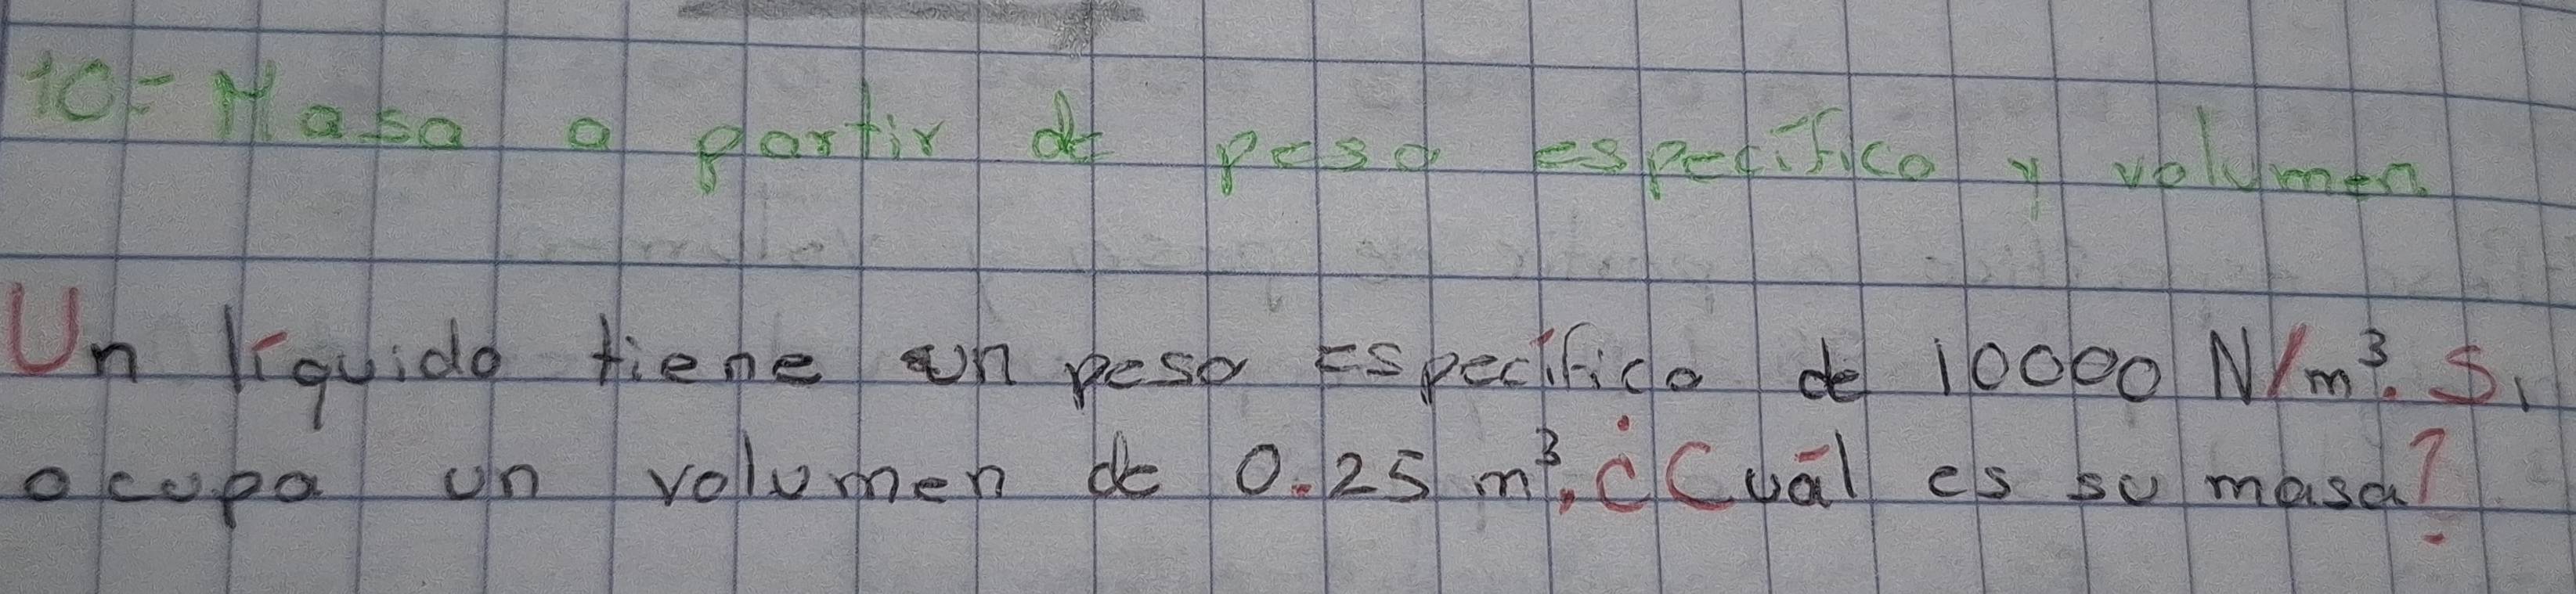 10= Masa a partir de peso específico y volumen
Un líquido tiene un peso Específico de 10000 N/m³. Si
ocupa un volumen de 0.25 m³, ¿Cuál es su masa?